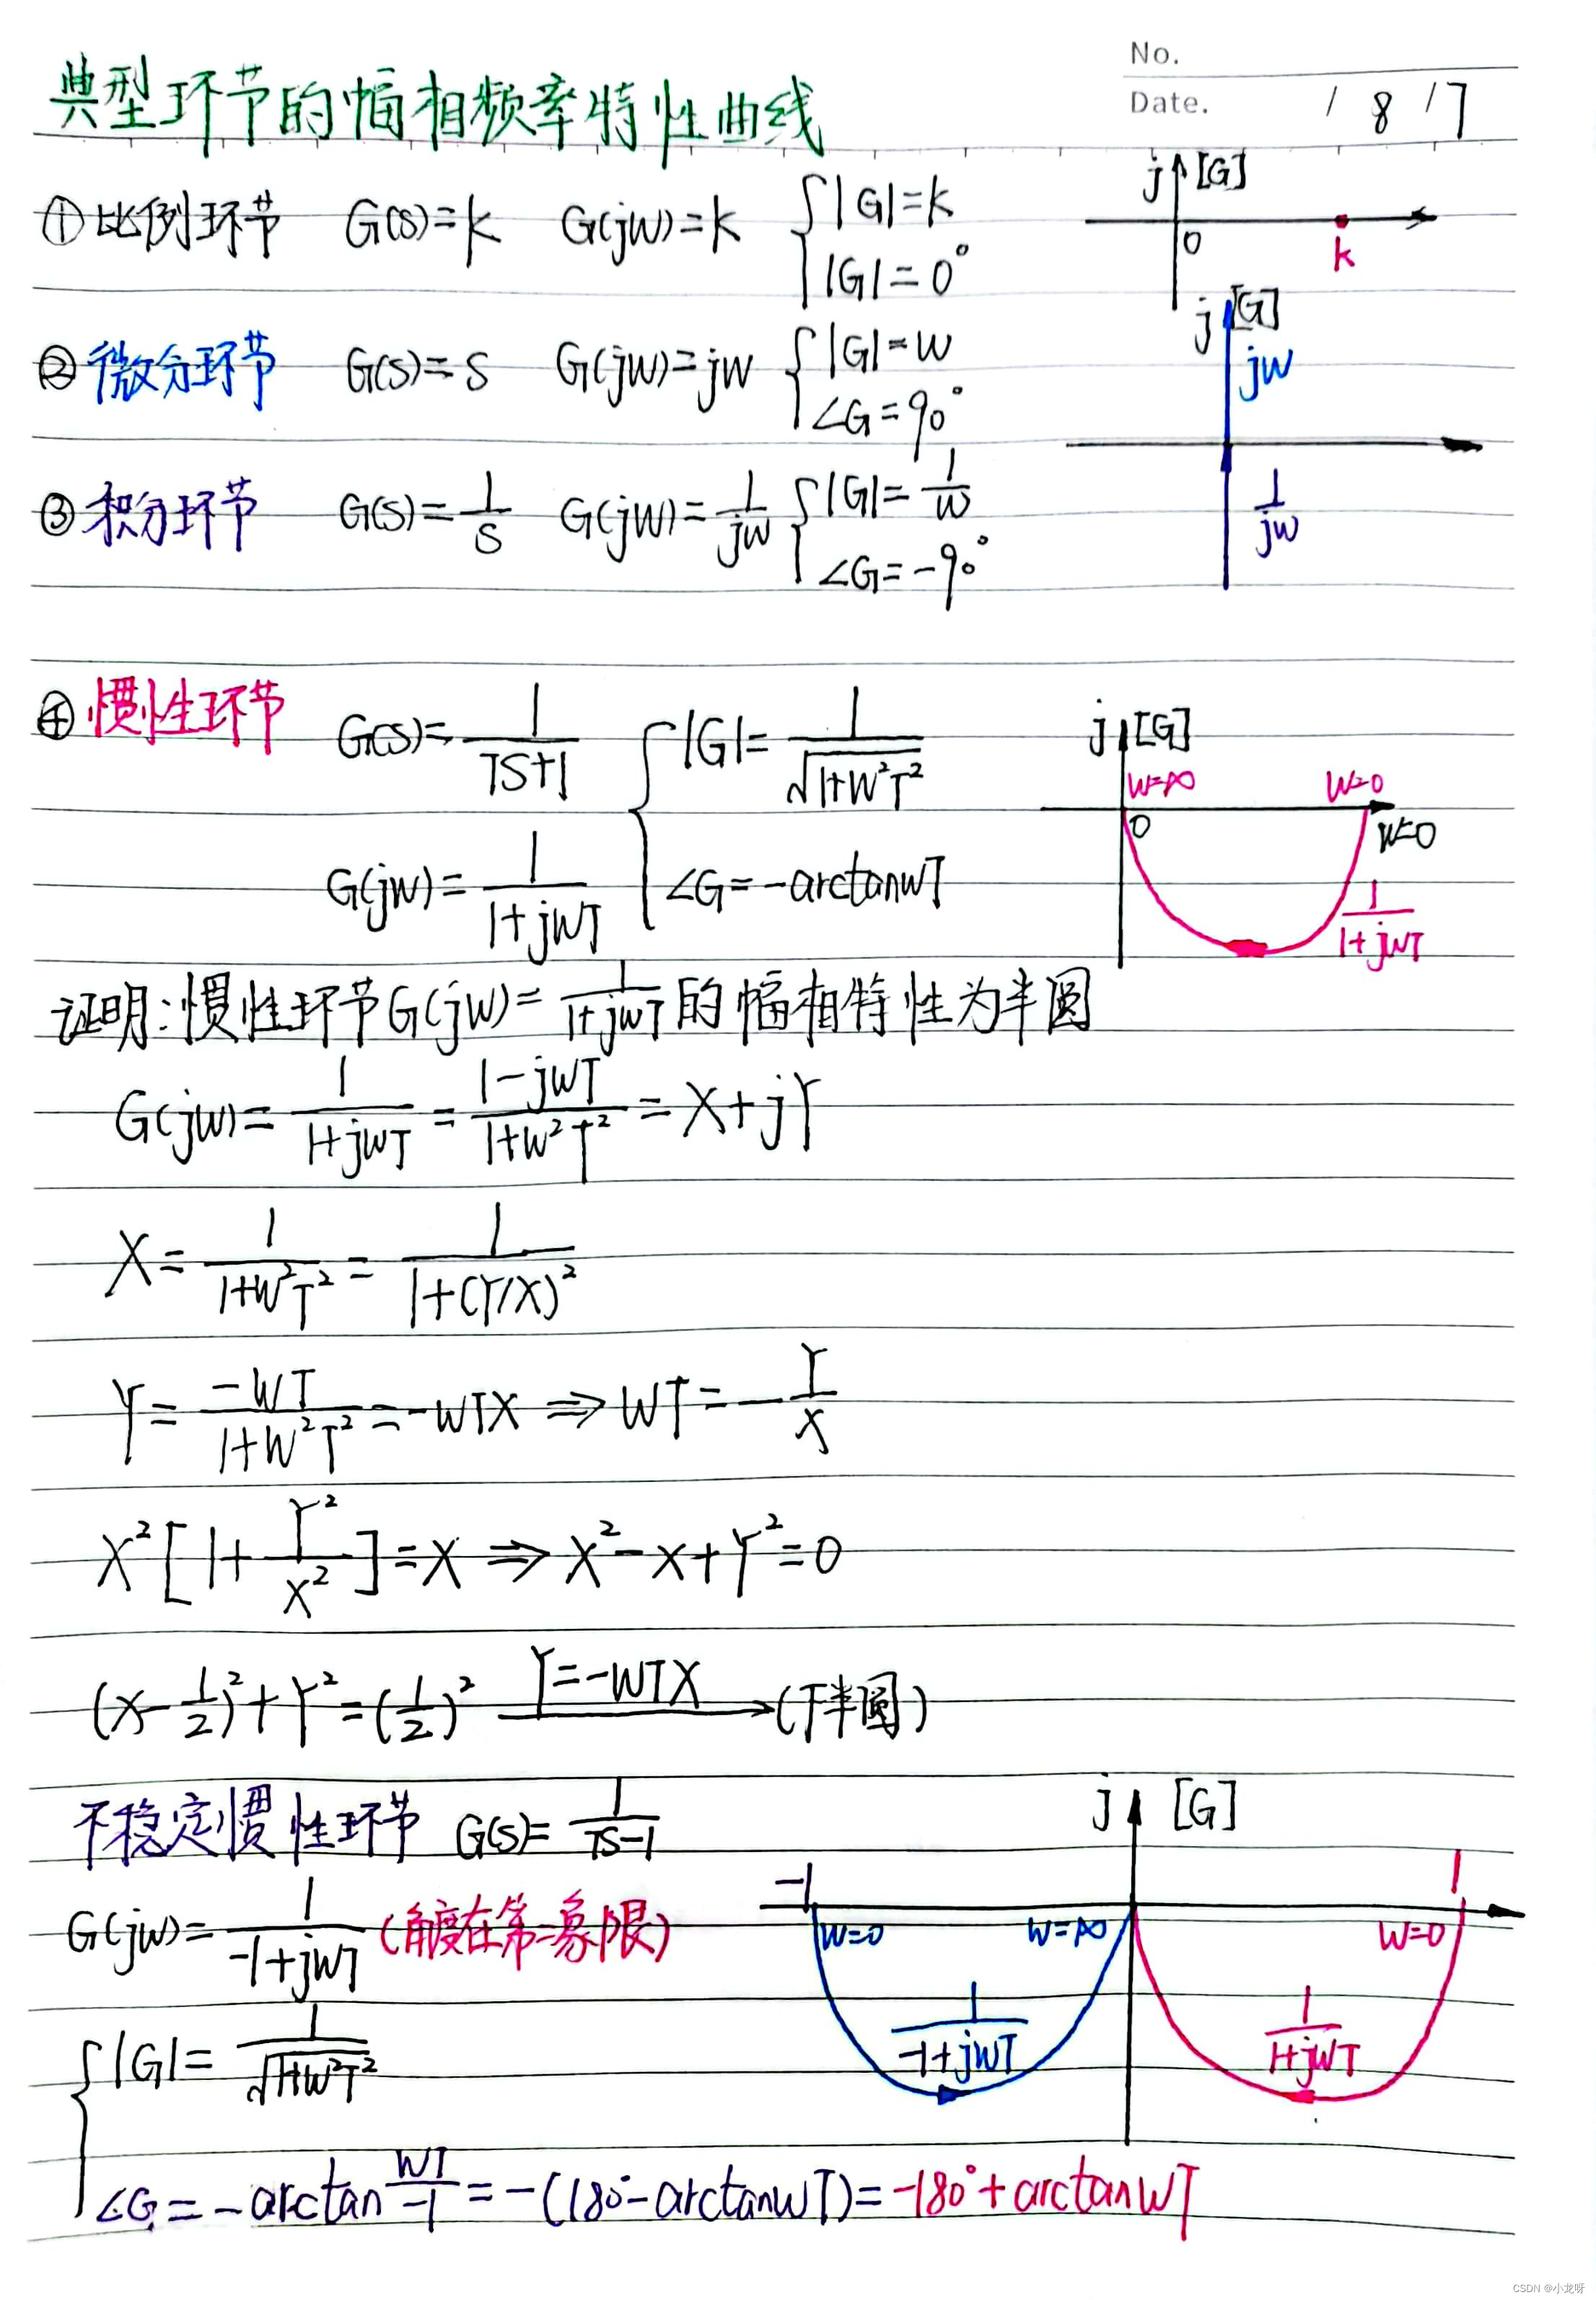 No.
Date. / 8 / 7
典型环节的幅相频率特性曲线
① 比例环节 G(s)=k G(jw)=k { |G|=k
|G|=0°
j [G]
0 k
② 微分环节 G(s)=s G(jw)=jw { |G|=w
∠G=90°
j [G]
jw
③ 积分环节 G(s)=1/s G(jw)=1/jw { |G|=1/w
∠G=-90°
1/jw
④ 惯性环节 G(s)=1/(TS+1) { |G|=1/√(1+w²T²)
G(jw)=1/(1+jwT) ∠G=-arctanwT
j [G]
w=∞ w=0
0 w=0
1/(1+jwT)
证明:惯性环节G(jw)=1/(1+jwT)的幅相特性为半圆
G(jw)=1/(1+jwT)=(1-jwT)/(1+w²T²)=X+jY
X=1/(1+w²T²)=1/(1+(Y/X)²)
Y=-wT/(1+w²T²)=-wTX ⇒ wT=-Y/X
X²[1+Y²/X²]=X ⇒ X²-X+Y²=0
(X-1/2)²+Y²=(1/2)² Y=-wTX → (下半圆)
不稳定惯性环节 G(s)=1/(TS-1)
G(jw)=1/(-1+jwT) (角度在第二象限)
j [G]
-1 1
w=0 w=∞ w=0
1/(-1+jwT) 1/(1+jwT)
{ |G|=1/√(1+w²T²)
∠G=-arctan wT/-1=-(180°-arctanwT)=-180°+arctanwT
CSDN @小龙呀